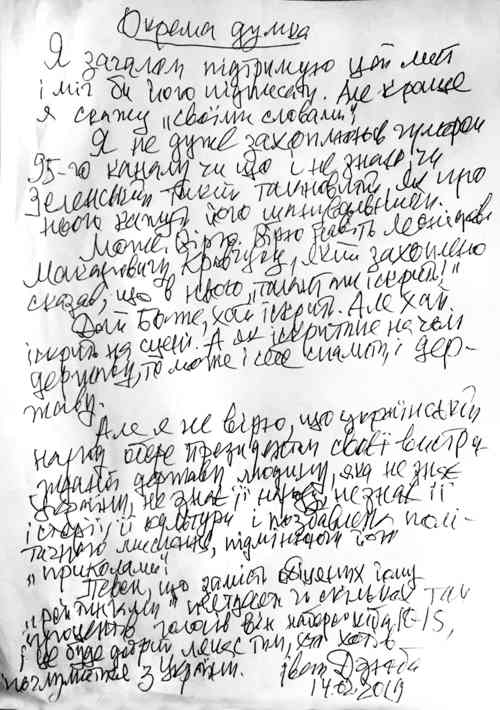 Окрема думка
Я загалом підтримую цей лист
і міг би його підписати. Але краще
я скажу „своїми словами".
Я не дуже захоплююсь гумором
95-го каналу чи що і не знаю, чи
Зеленський такий талановитий, як про
нього кажуть його шанувальники.
Може. Вірю. Вірю навіть Леонідові
Макаровичу Кравчуку, який захоплено
сказав, що в нього „талант аж іскрить!"
Дай Боже, хай іскрить. Але хай
іскрить на сцені. А як іскритиме на чолі
держави, то може і себе спалити, і дер-
жаву.
Але я не вірю, що український
народ обере президентом своєї вистраж-
даної держави людину, яка не знає
України, не знає її народу, не знає її
історії, її культури і позбавлена полі-
тичного мислення, підмінюючи його
„приколами".
Певен, що замість обіцяних йому
„рейтингами" не знаєм скільки там
процентів голосів він набере якихось 10-15,
і це буде добрий ляпас тим, хто хотів
поглумитися з України.
Іван Дзюба
14.02.2019